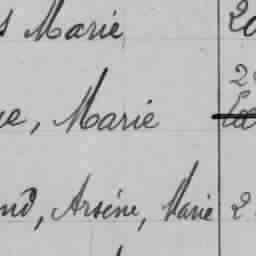 s Marie 20
ue, Marie
nd, Arsène, Marie 2